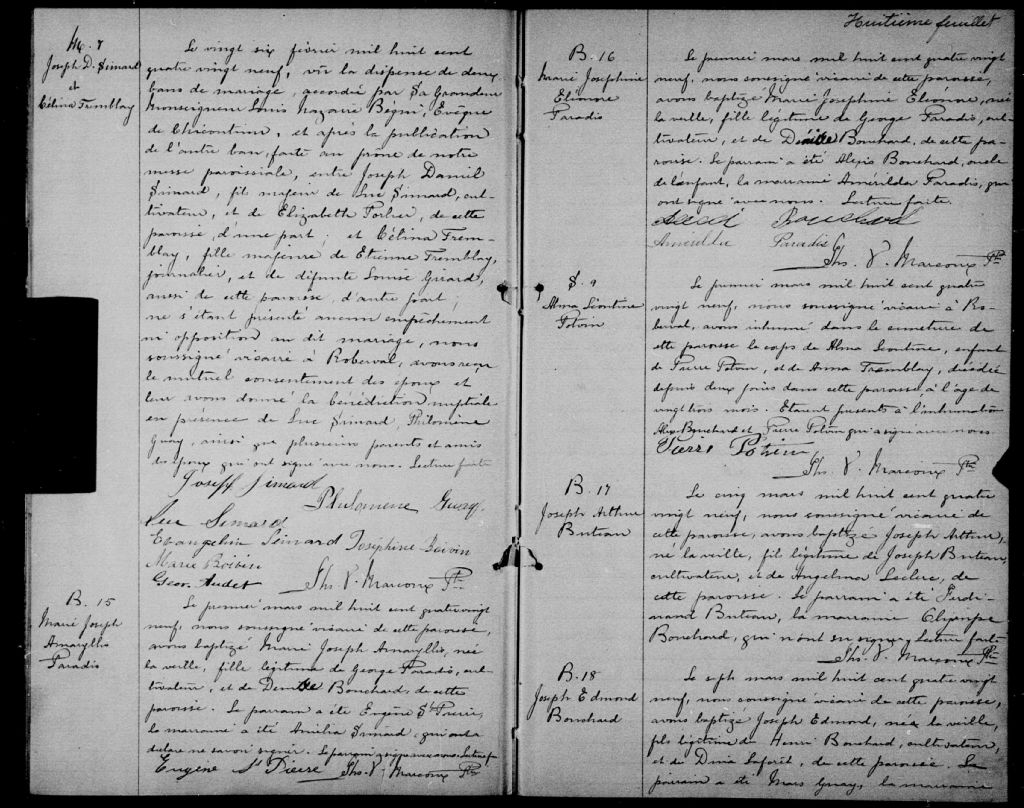 M. 7
Joseph D. Simard
et
Célina Tremblay
Le vingt six février mil huit cent
quatre vingt neuf, vû la dispense de deux
bans de mariage, accordée par Sa Grandeur
Monseigneur Louis Nazaire Bégin, Evêque
de Chicoutimi, et après la publication
de l'autre ban, faite au prône de notre
messe paroissiale, entre Joseph Daniel
Simard, fils majeur de Luc Simard, cul-
tivateur, et de Elizabeth Fortier, de cette
paroisse d'une part; et Célina Trem-
blay, fille majeure de Etienne Tremblay,
journalier, et de défunte Louise Girard,
aussi de cette paroisse, d'autre part;
ne s'étant présenté aucun empêchement
ni opposition au dit mariage, nous
soussigné vicaire à Roberval, avons reçu
le mutuel consentement des époux et
leur avons donné la bénédiction nuptiale
en présence de Luc Simard, Philomène
Guay, ainsi que plusieurs parents et amis
des époux qui ont signé avec nous. Lecture faite
Joseph Simard
Philomene Guay
Luc Simard
Evangelin Simard Joséphine Boivin
Marie Boivin
Geor. Audet Ths. V. Marcoux Ptre
B. 15
Marie Joseph
Amaryllis
Paradis
Le premier mars mil huit cent quatre vingt
neuf, nous soussigné vicaire de cette paroisse,
avons baptisé Marie Joseph Amaryllis, née
la veille, fille légitime de George Paradis, cul-
tivateur, et de Bouchard, de cette
paroisse. Le parrain a été Eugène St Pierre,
la marraine a été Amélia Simard, qui a
déclaré ne savoir signer. Le parrain a signé avec nous. Lecture f.
Eugène St Pierre Ths. V. Marcoux Ptre
Huitième feuillet
B. 16
Marie Josephine
Eléonore
Paradis
Le premier mars mil huit cent quatre vingt
neuf, nous soussigné vicaire de cette paroisse,
avons baptisé Marie Josephine Eléonore, née
la veille, fille légitime de George Paradis, cul-
tivateur, et de Bouchard, de cette pa-
roisse. Le parrain a été Alexis Bouchard, oncle
de l'enfant, la marraine Amérilda Paradis, qui
ont signé avec nous. Lecture faite.
Alexi Bouchard
Amérilda Paradis
Ths. V. Marcoux Ptre
S. 9
Alma Léontine
Potvin
Le premier mars mil huit cent quatre
vingt neuf, nous soussigné vicaire à Ro-
berval, avons inhumé dans le cimetière de
cette paroisse le corps de Alma Léontine, enfant
de Pierre Potvin, et de Anna Tremblay, décédée
depuis deux jours dans cette paroisse à l'age de
vingt trois mois. Etaient présents à l'inhumation
Alex Bouchard et Pierre Potvin qui a signé avec nous
Pierre Potvin
Ths. V. Marcoux Ptre
B. 17
Joseph Arthur
Buteau
Le cinq mars mil huit cent quatre
vingt neuf, nous soussigné vicaire de
cette paroisse, avons baptisé Joseph Arthur,
né la veille, fils légitime de Joseph Buteau,
cultivateur, et de Angelina Leclerc, de
cette paroisse. Le parrain a été Ferdi-
nand Buteau, la marraine
Bouchard, qui n'ont su signer. Lecture faite
Ths. V. Marcoux Ptre
B. 18
Joseph Edmond
Bouchard
Le sept mars mil huit cent quatre vingt
neuf, nous soussigné vicaire de cette paroisse,
avons baptisé Joseph Edmond, né la veille,
fils légitime de Henri Bouchard, cultivateur,
et de Dina Laforêt, de cette paroisse. Le
parrain a été Mars Guay, la marraine